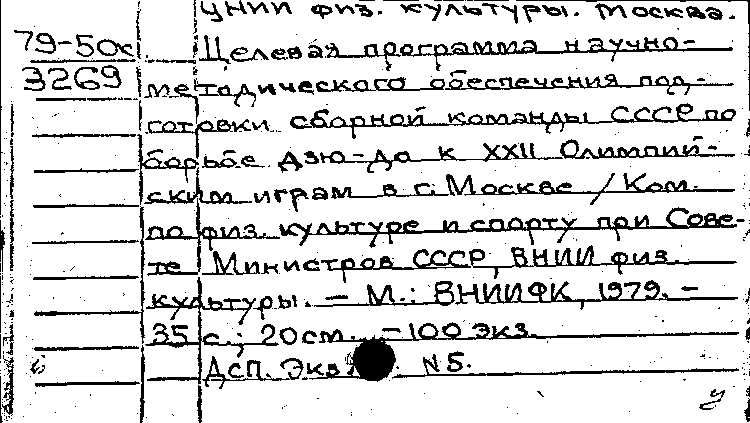 ЦНИИ физ. культуры. Москва.
79-50к Целевая программа научно-
3269 методического обеспечения под-
готовки сборной команды СССР по
борьбе дзю-до к XXII Олимпий-
ским играм в г. Москве / Ком.
по физ. культуре и спорту при Сове-
те Министров СССР, ВНИИ физ.
культуры. – М.: ВНИИФК, 1979. –
35 с.; 20 см. – 100 экз.
ДСП. Экз. N5.